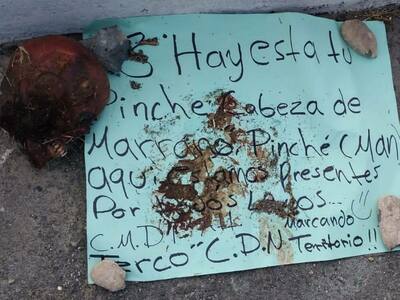 Hay esta tu
Pinche Cabeza de
Marrano Pinche (Man)
aqui Estamos Presentes
Por Lados...
Marcando
C.M.D.
Terco" C.D.N Territorio!!